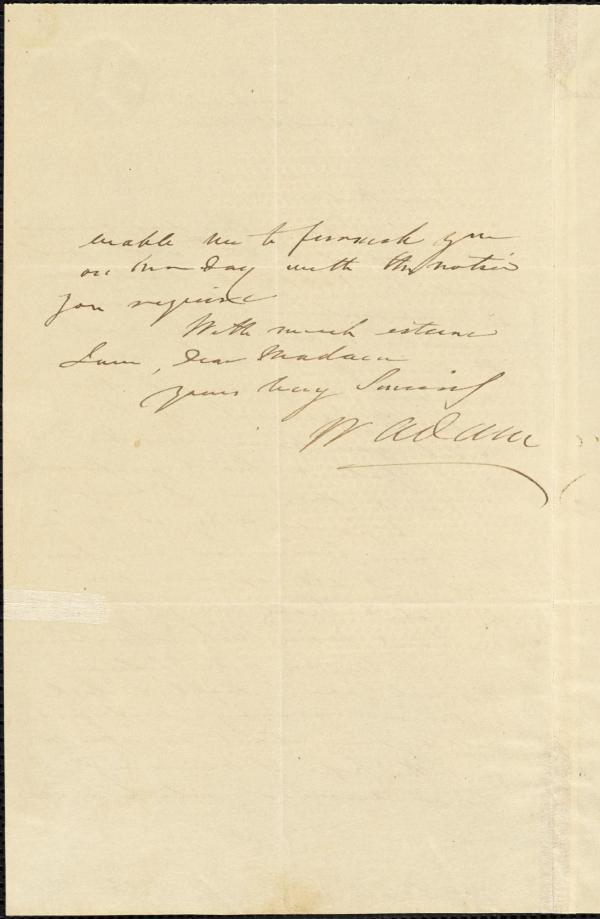 enable me to furnish you
on Monday with the notice
you require
With much esteem
I am, dear Madam
yours very Sincerely
W Adam